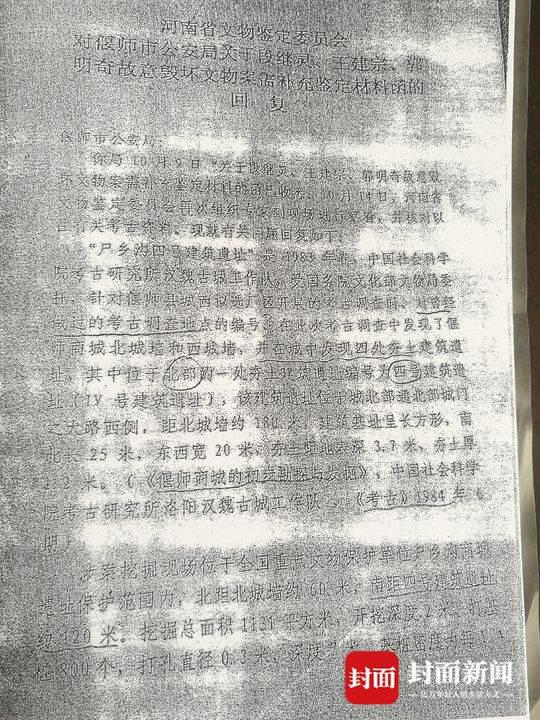 河南省文物鉴定委员会
对偃师市公安局关于段继灵、王建宗、郭
明奇故意毁坏文物案需补充鉴定材料函的
回 复
偃师市公安局：
你局10月9日“关于段继灵、王建宗、郭明奇故意毁
坏文物案需补充鉴定材料的函已收悉。10月14日，河南省
文物鉴定委员会再次组织专家到现场进行察看，并核对以
往有关考古资料。现就有关问题回复如下：
“尸乡沟四号建筑遗址”是1983年春，中国社会科学
院考古研究所汉魏古城工作队，受国务院文化部文物局委
托，针对偃师县城西拟选厂区开展的考古调查时，对曾经
做过的考古调查地点的编号。在此次考古调查中发现了偃
师商城北城墙和西城墙，并在城中发现四处夯土建筑遗
址。其中位于北部的一处夯土建筑遗址编号为四号建筑遗
址（IV号建筑遗址），该建筑遗址位于城北部通北部城门
之大路西侧，距北城墙约180米，建筑基址呈长方形，南
北长25米，东西宽20米，夯土距地表深3.7米，夯土厚
2米。（《偃师商城的初步勘探与发掘》，中国社会科学
院考古研究所洛阳汉魏古城工作队，《考古》1984年6
期）
涉案挖掘现场位于全国重点文物保护单位尸乡沟商城
遗址保护范围内，北距北城墙约60米，南距四号建筑遗址
约120米。挖掘总面积1131平方米，开挖深度2米，
桩800个，打孔直径0.3米，深度
封面 封面新闻
亿万年轻人的生活方式